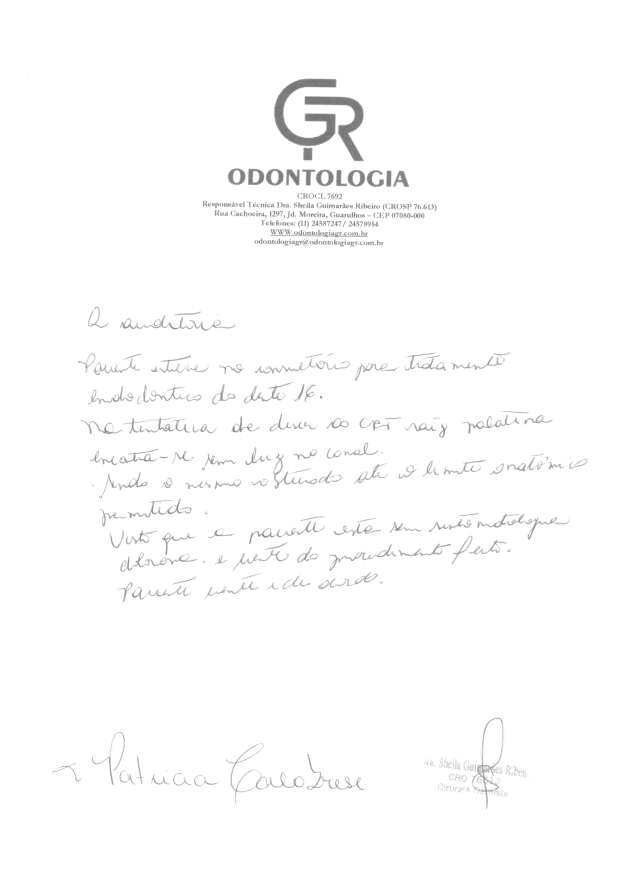 GR
ODONTOLOGIA
CROCL 7692
Responsável Técnica Dra. Sheila Guimarães Ribeiro (CROSP 76.613)
Rua Cachoeira, 1297, Jd. Moreira, Guarulhos – CEP 07080-000
Telefones: (11) 24587247/ 24578954
WWW.odontologiagr.com.br
odontologiagr@odontologiagr.com.br
A auditoria
Paciente esteve no consultório para tratamento
endodontico do dente 16.
Na tentativa de descer ao CRT raiz palatina
encontra-se sem luz no canal.
Sendo o mesmo obturado até o limite anatômico
permitido.
Visto que a paciente está sem sintomatologia
dolorosa. e ciente do procedimento feito.
Paciente ciente e de acordo.
Patricia
Dra. Sheila Guimarães Ribeiro
CRO
Cirurgiã Dentista